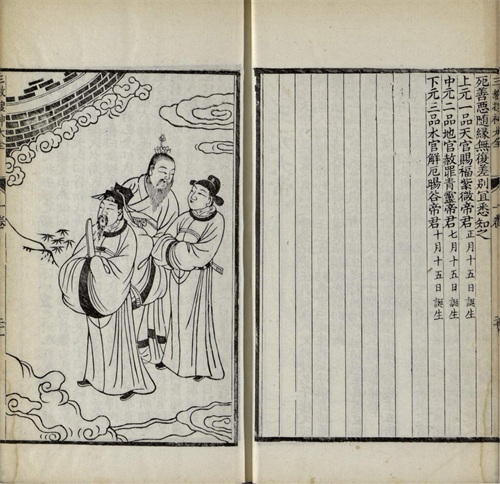 死善惡隨緣無復差別宜悉知之
上元一品天官賜福紫微帝君正月十五日誕生
中元二品地官赦罪青靈帝君七月十五日誕生
下元三品水官解厄暘谷帝君十月十五日誕生